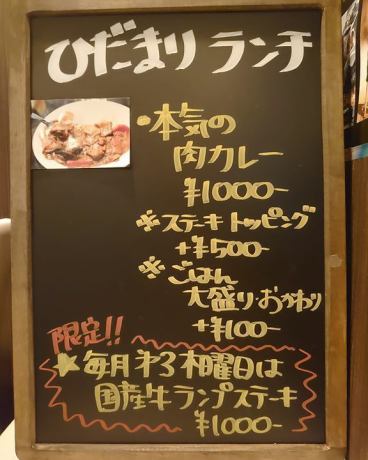 ひだまり ランチ
・本気の
肉カレー
¥1000-
※ステーキ トッピング
+¥500-
※ごはん
大盛り・おかわり
+¥100-
限定!!
★毎月 第3 木曜日は
国産牛ランプステーキ
¥1000-